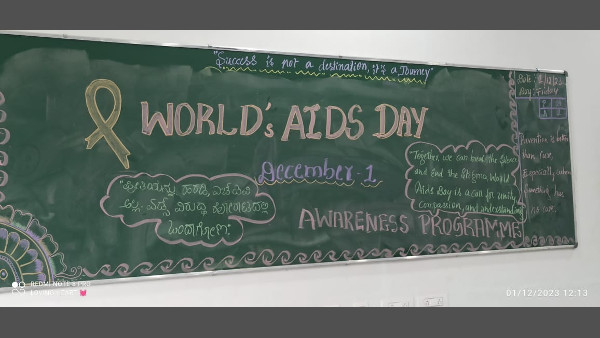 "Success is not a destination, it's a Journey"
Date: 1/12/23
Day: Friday
WORLD's AIDS DAY
December-1
"ಪ್ರೀತಿಯನ್ನು ಹರಡಿ, ಎಚ್ಐವಿ
ಅಲ್ಲ. ಏಡ್ಸ್ ವಿರುದ್ಧ ಹೋರಾಟದಲ್ಲಿ
ಒಂದಾಗೋಣ."
Together, we can break the Silence
and End the Stigma. World
Aids Day is a call for unity,
Compassion, and understanding
AWARENESS PROGRAMME
Prevention is better
than cure,
Especially, when
Something has
no cure.
REDMI NOTE 9 PRO
01/12/2023 12:13